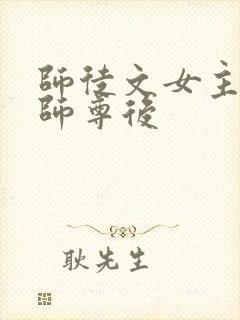 師徒文女主
師尊後
耿先生